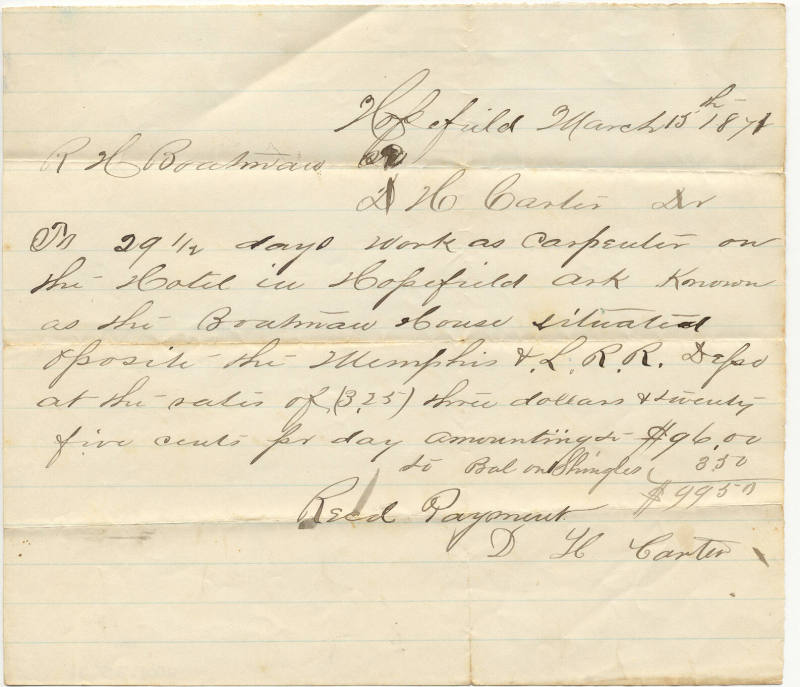 Hopefield March 15th 1871
R H Boatman
D H Carter Dr
To 29 1/2 days work as Carpenter on
the Hotel in Hopefield Ark Known
as the Boatman House situated
oposite the Memphis & L. R. R. Depo
at the rates of (3.25) three dollars & twenty
five cents pr day amounting to $96.00
to Bal on Shingles 3.50
$99.50
Recd Payment
D H Carter